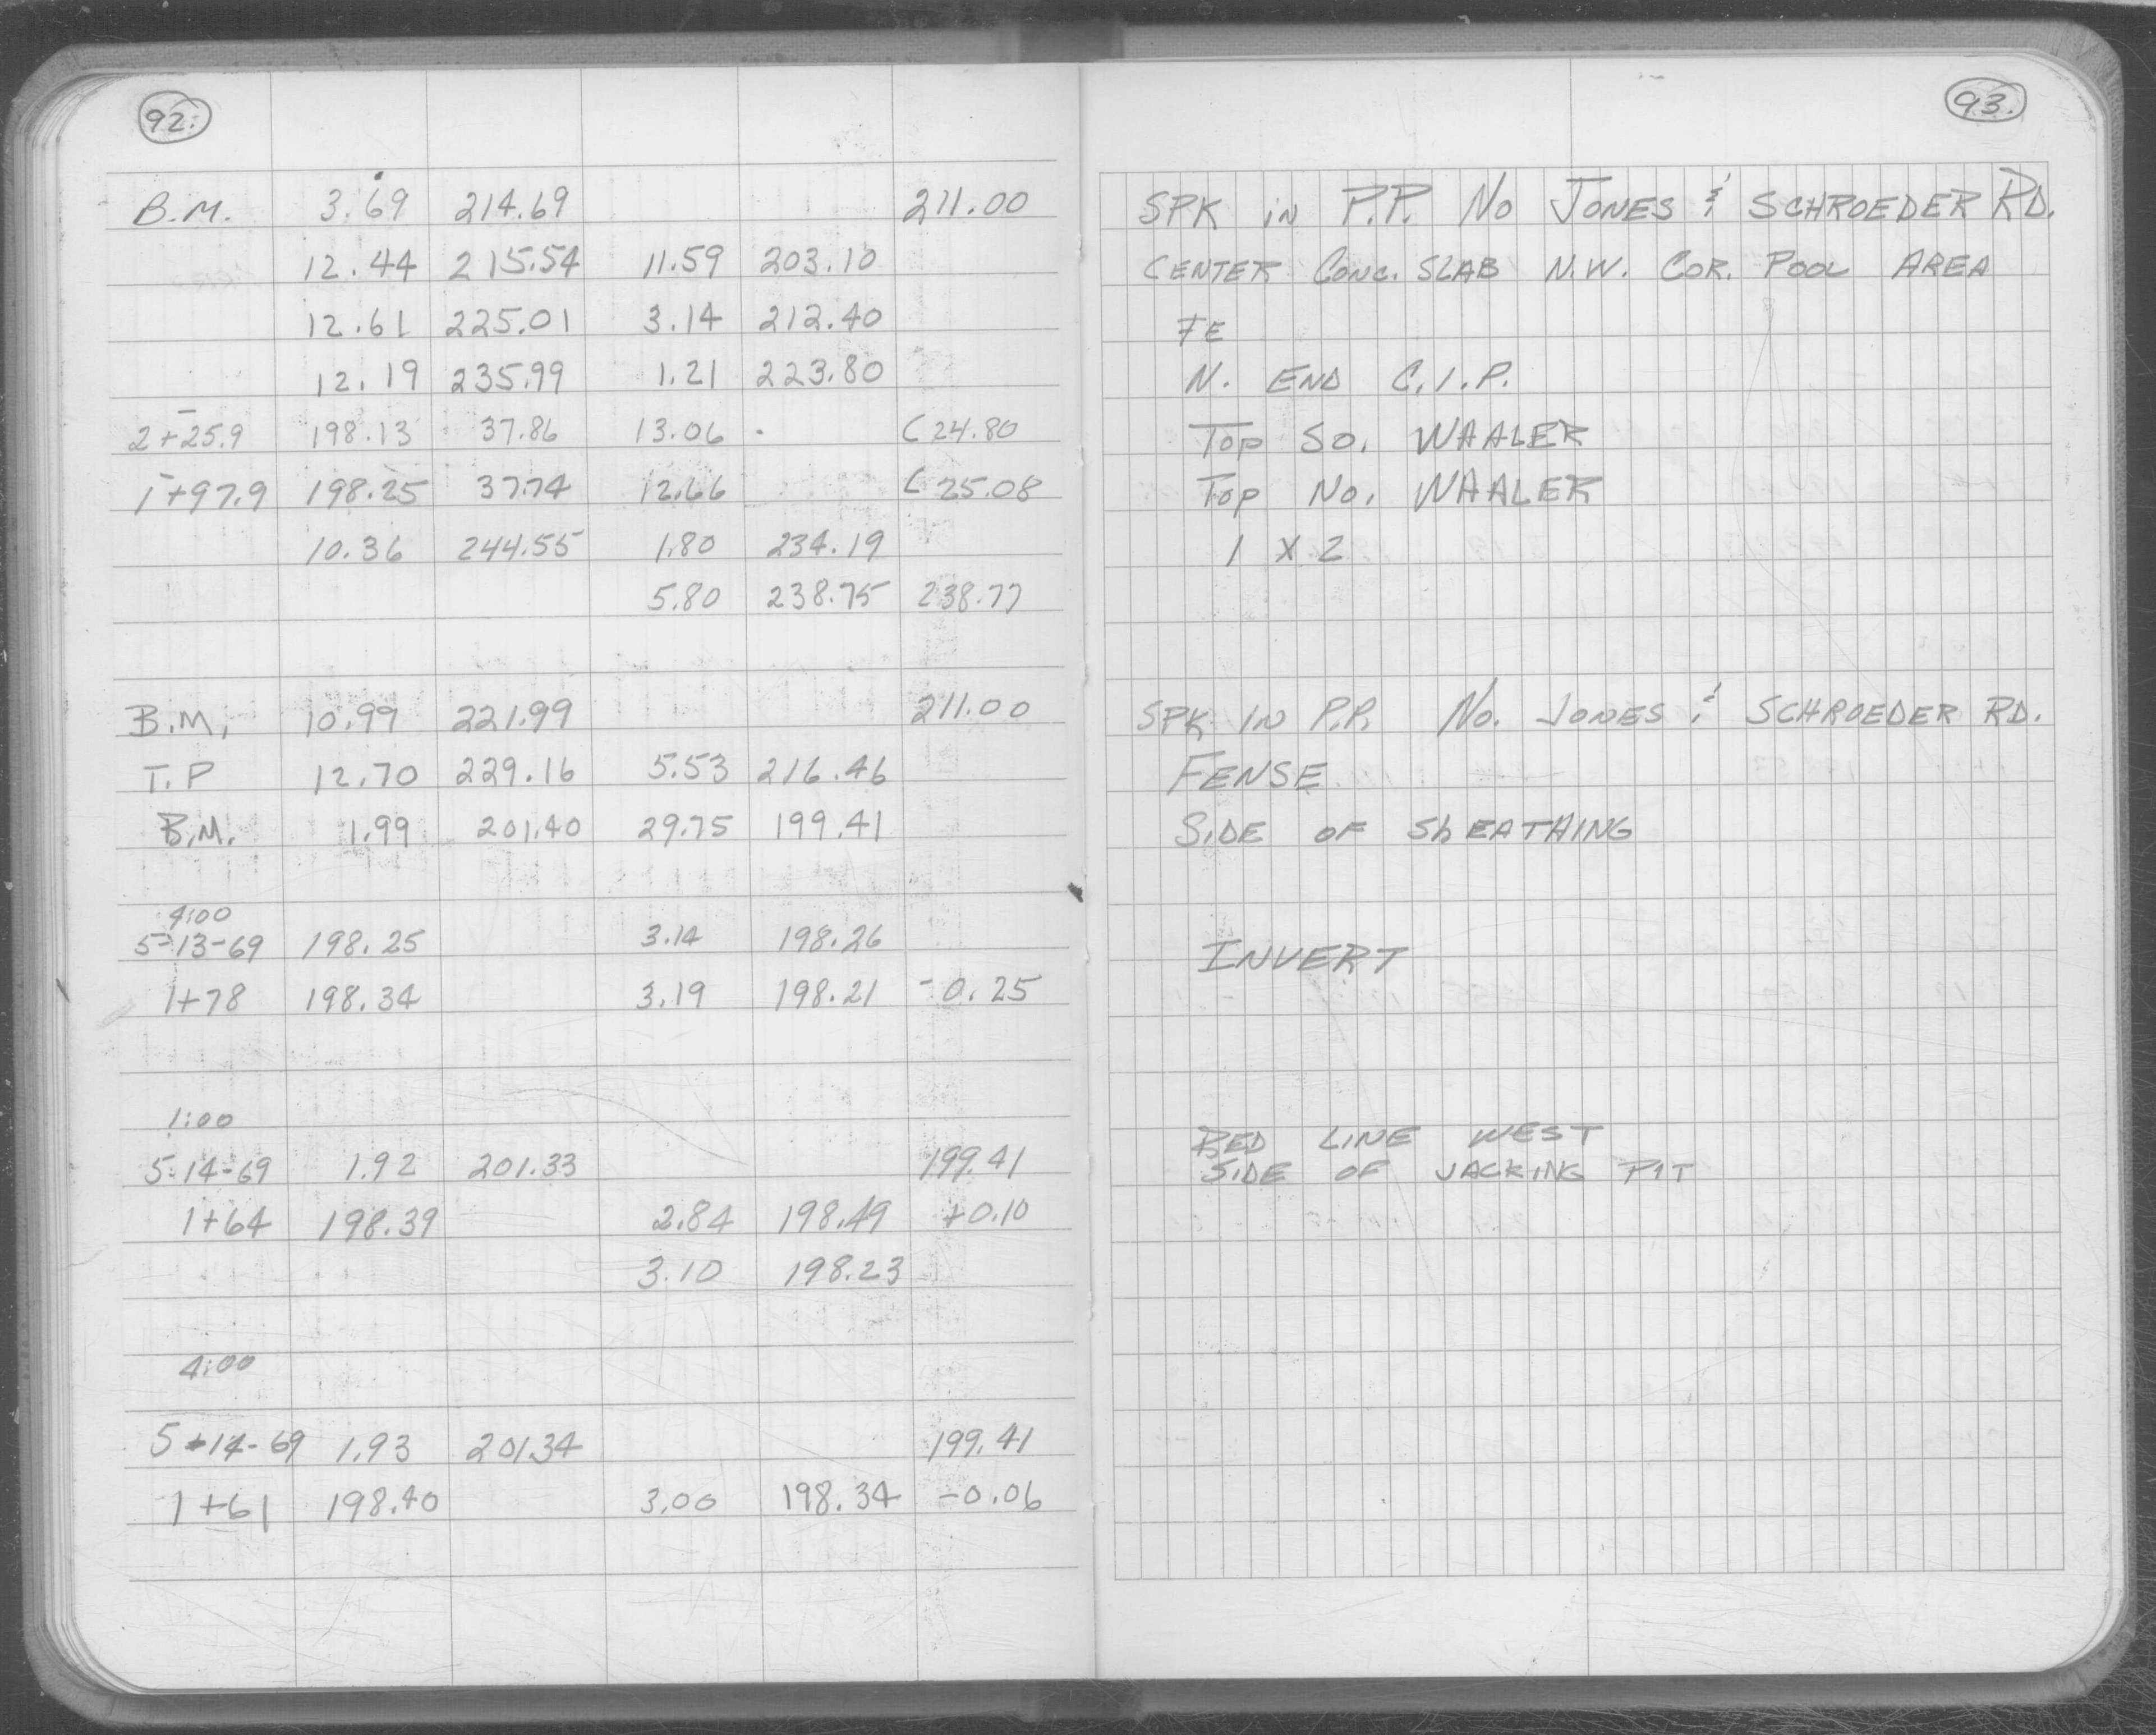 92.
B.M. 3.69 214.69 211.00
12.44 215.54 11.59 203.10
12.61 225.01 3.14 212.40
12.19 235.99 1.21 223.80
2+25.9 198.13 37.86 13.06 C 24.80
1+97.9 198.25 37.74 12.66 C 25.08
10.36 244.55 1.80 234.19
5.80 238.75 238.77
B.M. 10.99 221.99 211.00
T.P 12.70 229.16 5.53 216.46
B.M. 1.99 201.40 29.75 199.41
4:00
5-13-69 198.25 3.14 198.26
1+78 198.34 3.19 198.21 -0.25
1:00
5-14-69 1.92 201.33 199.41
1+64 198.39 2.84 198.49 +0.10
3.10 198.23
4:00
5-14-69 1.93 201.34 199.41
1+61 198.40 3.00 198.34 -0.06
93.
SPK IN P.P. No JONES & SCHROEDER RD.
CENTER CONC. SLAB N.W. COR. POOL AREA
FE
N. END C.I.P.
TOP SO. WAALER
TOP NO. WAALER
1 X 2
SPK IN P.P. No. JONES & SCHROEDER RD.
FENSE
SIDE OF ShEATHING
INVERT
RED LINE WEST
SIDE OF JACKING PIT